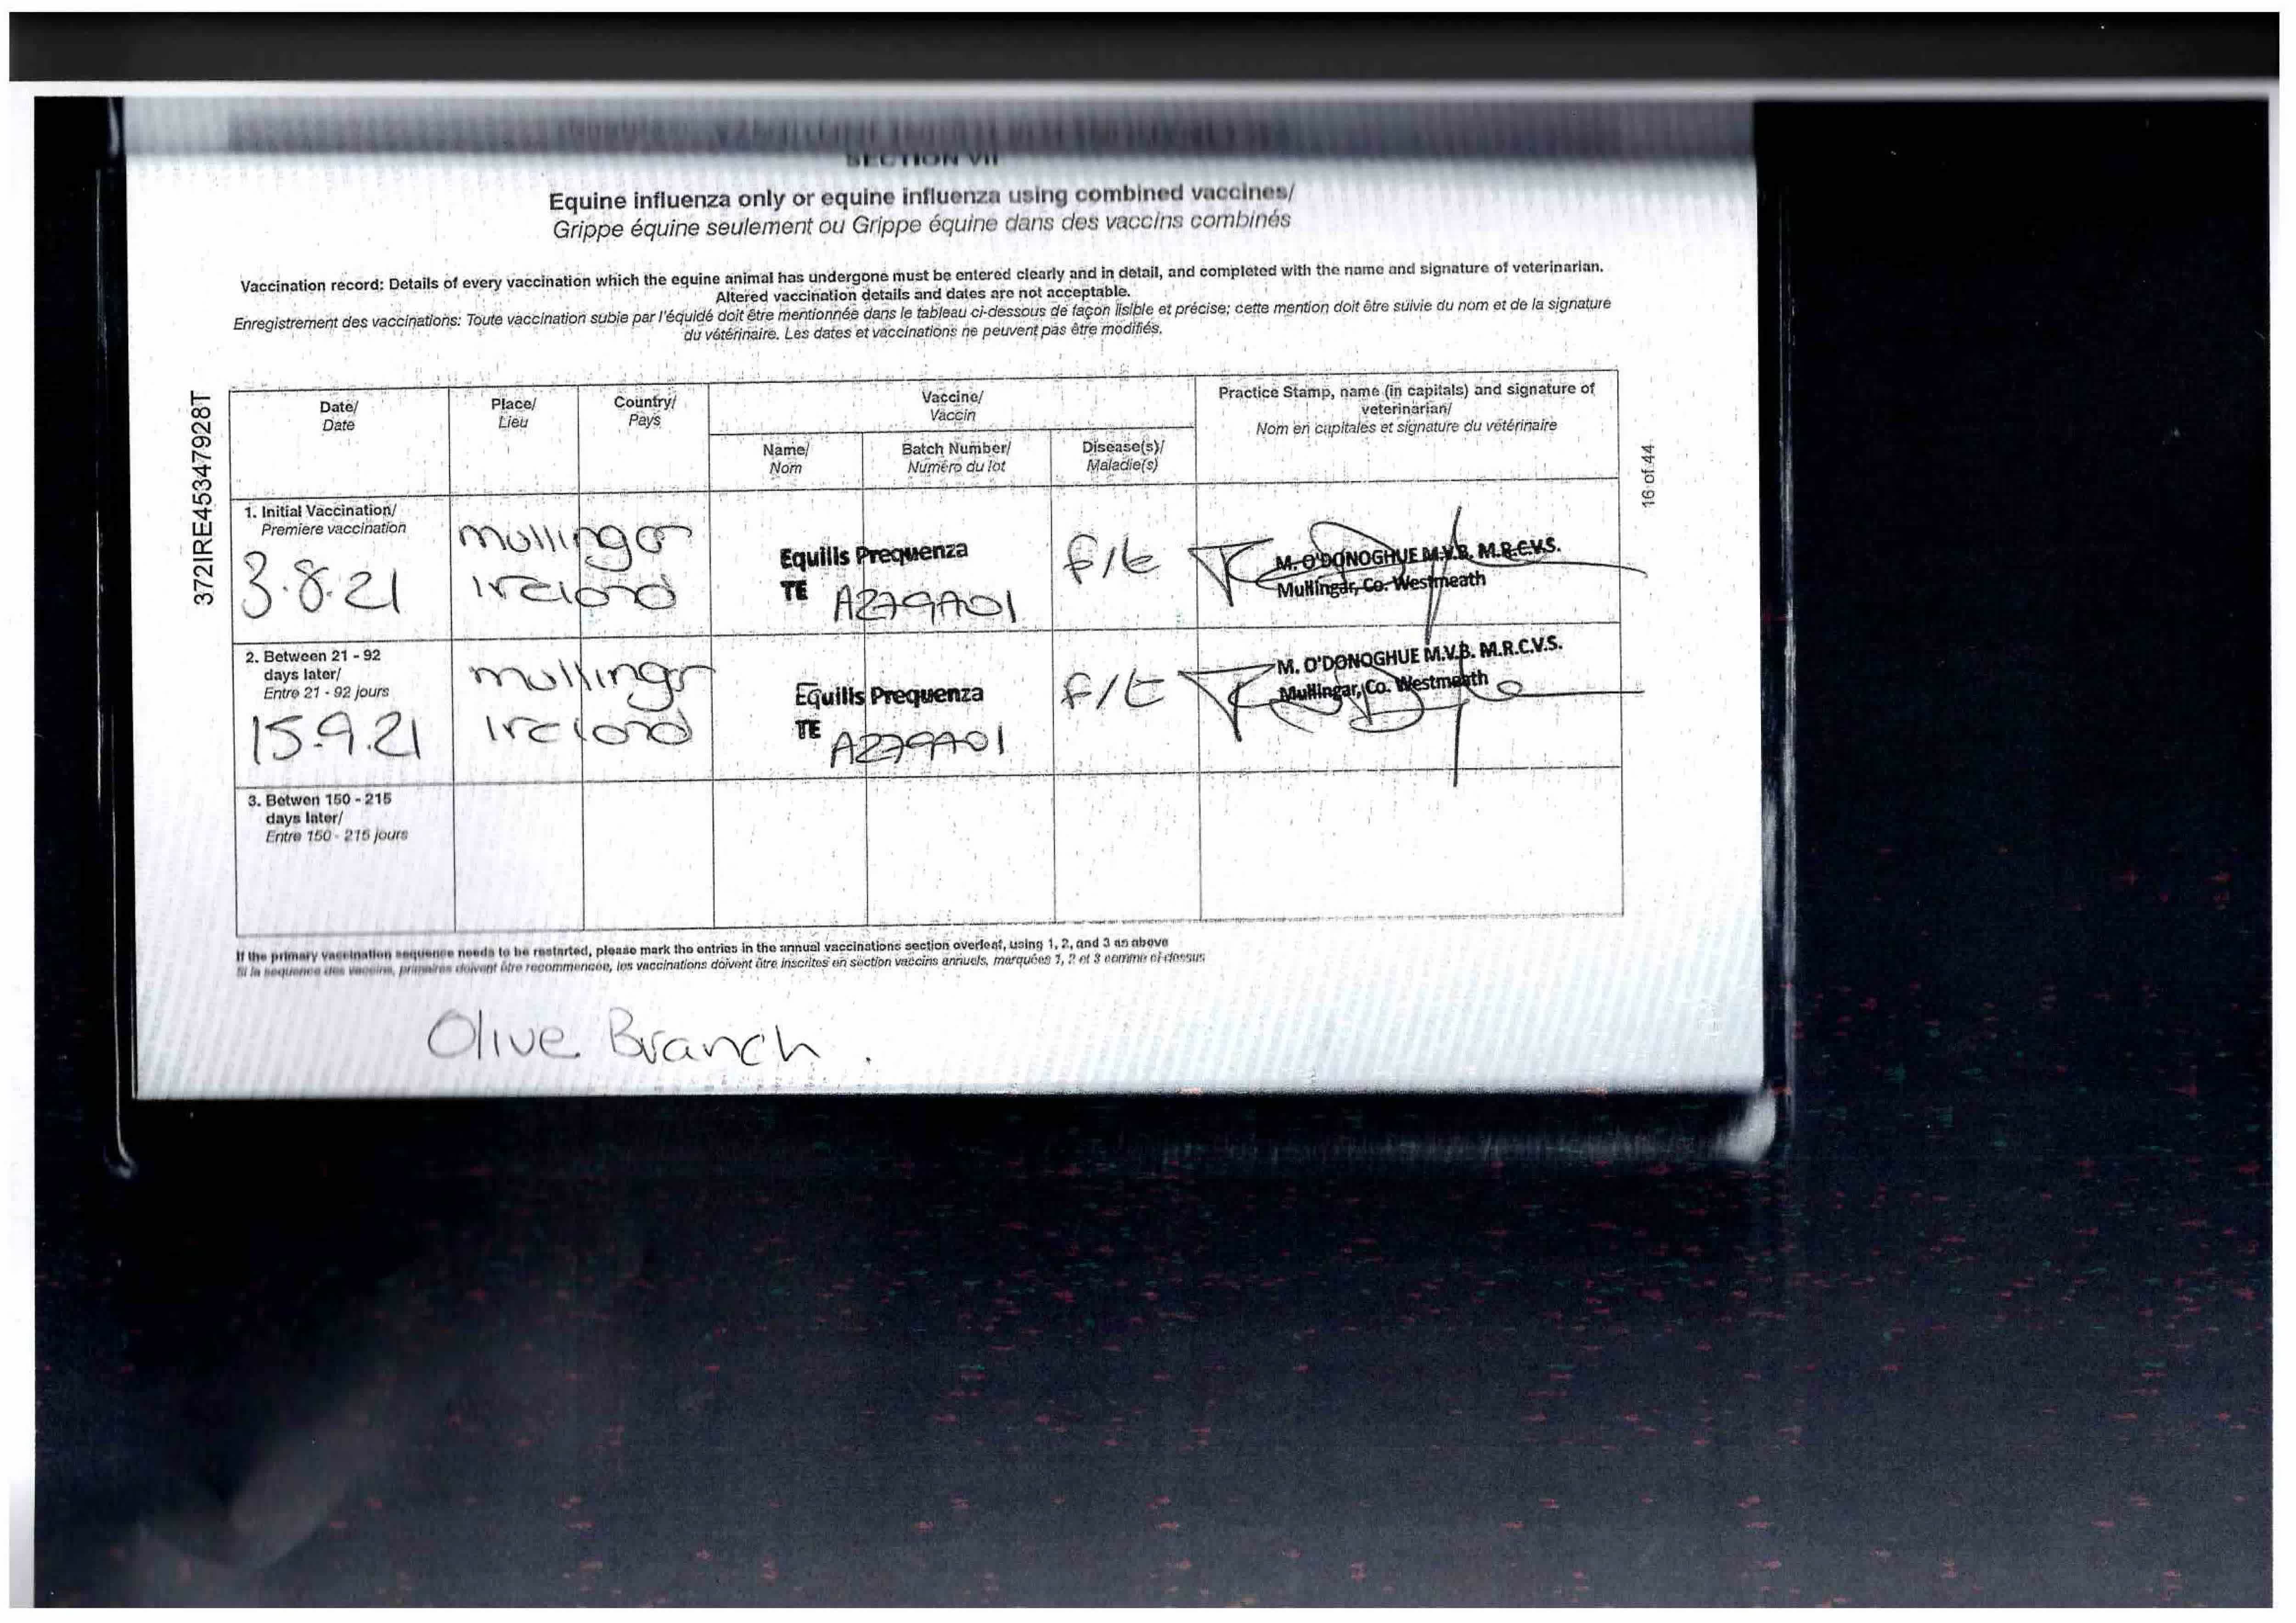 SECTION VII
Equine influenza only or equine influenza using combined vaccines/
Grippe équine seulement ou Grippe équine dans des vaccins combinés
Vaccination record: Details of every vaccination which the equine animal has undergone must be entered clearly and in detail, and completed with the name and signature of veterinarian.
Altered vaccination details and dates are not acceptable.
Enregistrement des vaccinations: Toute vaccination subie par l'équidé doit être mentionnée dans le tableau ci-dessous de façon lisible et précise; cette mention doit être suivie du nom et de la signature
du vétérinaire. Les dates et vaccinations ne peuvent pas être modifiés.
372IRE45347928T
16 of 44
Date/
Date
Place/
Lieu
Country/
Pays
Vaccine/
Vaccin
Name/
Nom
Batch Number/
Numéro du lot
Disease(s)/
Maladie(s)
Practice Stamp, name (in capitals) and signature of
veterinarian/
Nom en capitales et signature du vétérinaire
1. Initial Vaccination/
Premiere vaccination
3.8.21
mullingar
Ireland
Equilis Prequenza
TE A279A01
f/t
M. O'DONOGHUE M.V.B. M.R.C.V.S.
Mullingar, Co. Westmeath
2. Between 21 - 92
days later/
Entre 21 - 92 jours
15.9.21
mullingar
Ireland
Equilis Prequenza
TE A279A01
f/t
M. O'DONOGHUE M.V.B. M.R.C.V.S.
Mullingar, Co. Westmeath
3. Betwen 150 - 215
days later/
Entre 150 - 215 jours
If the primary vaccination sequence needs to be restarted, please mark the entries in the annual vaccinations section overleaf, using 1, 2, and 3 as above
Si la sequence des vaccins, primaires doivent être recommencée, les vaccinations doivent être inscrites en section vaccins annuels, marquées 1, 2 et 3 comme ci-dessus
Olive Branch.